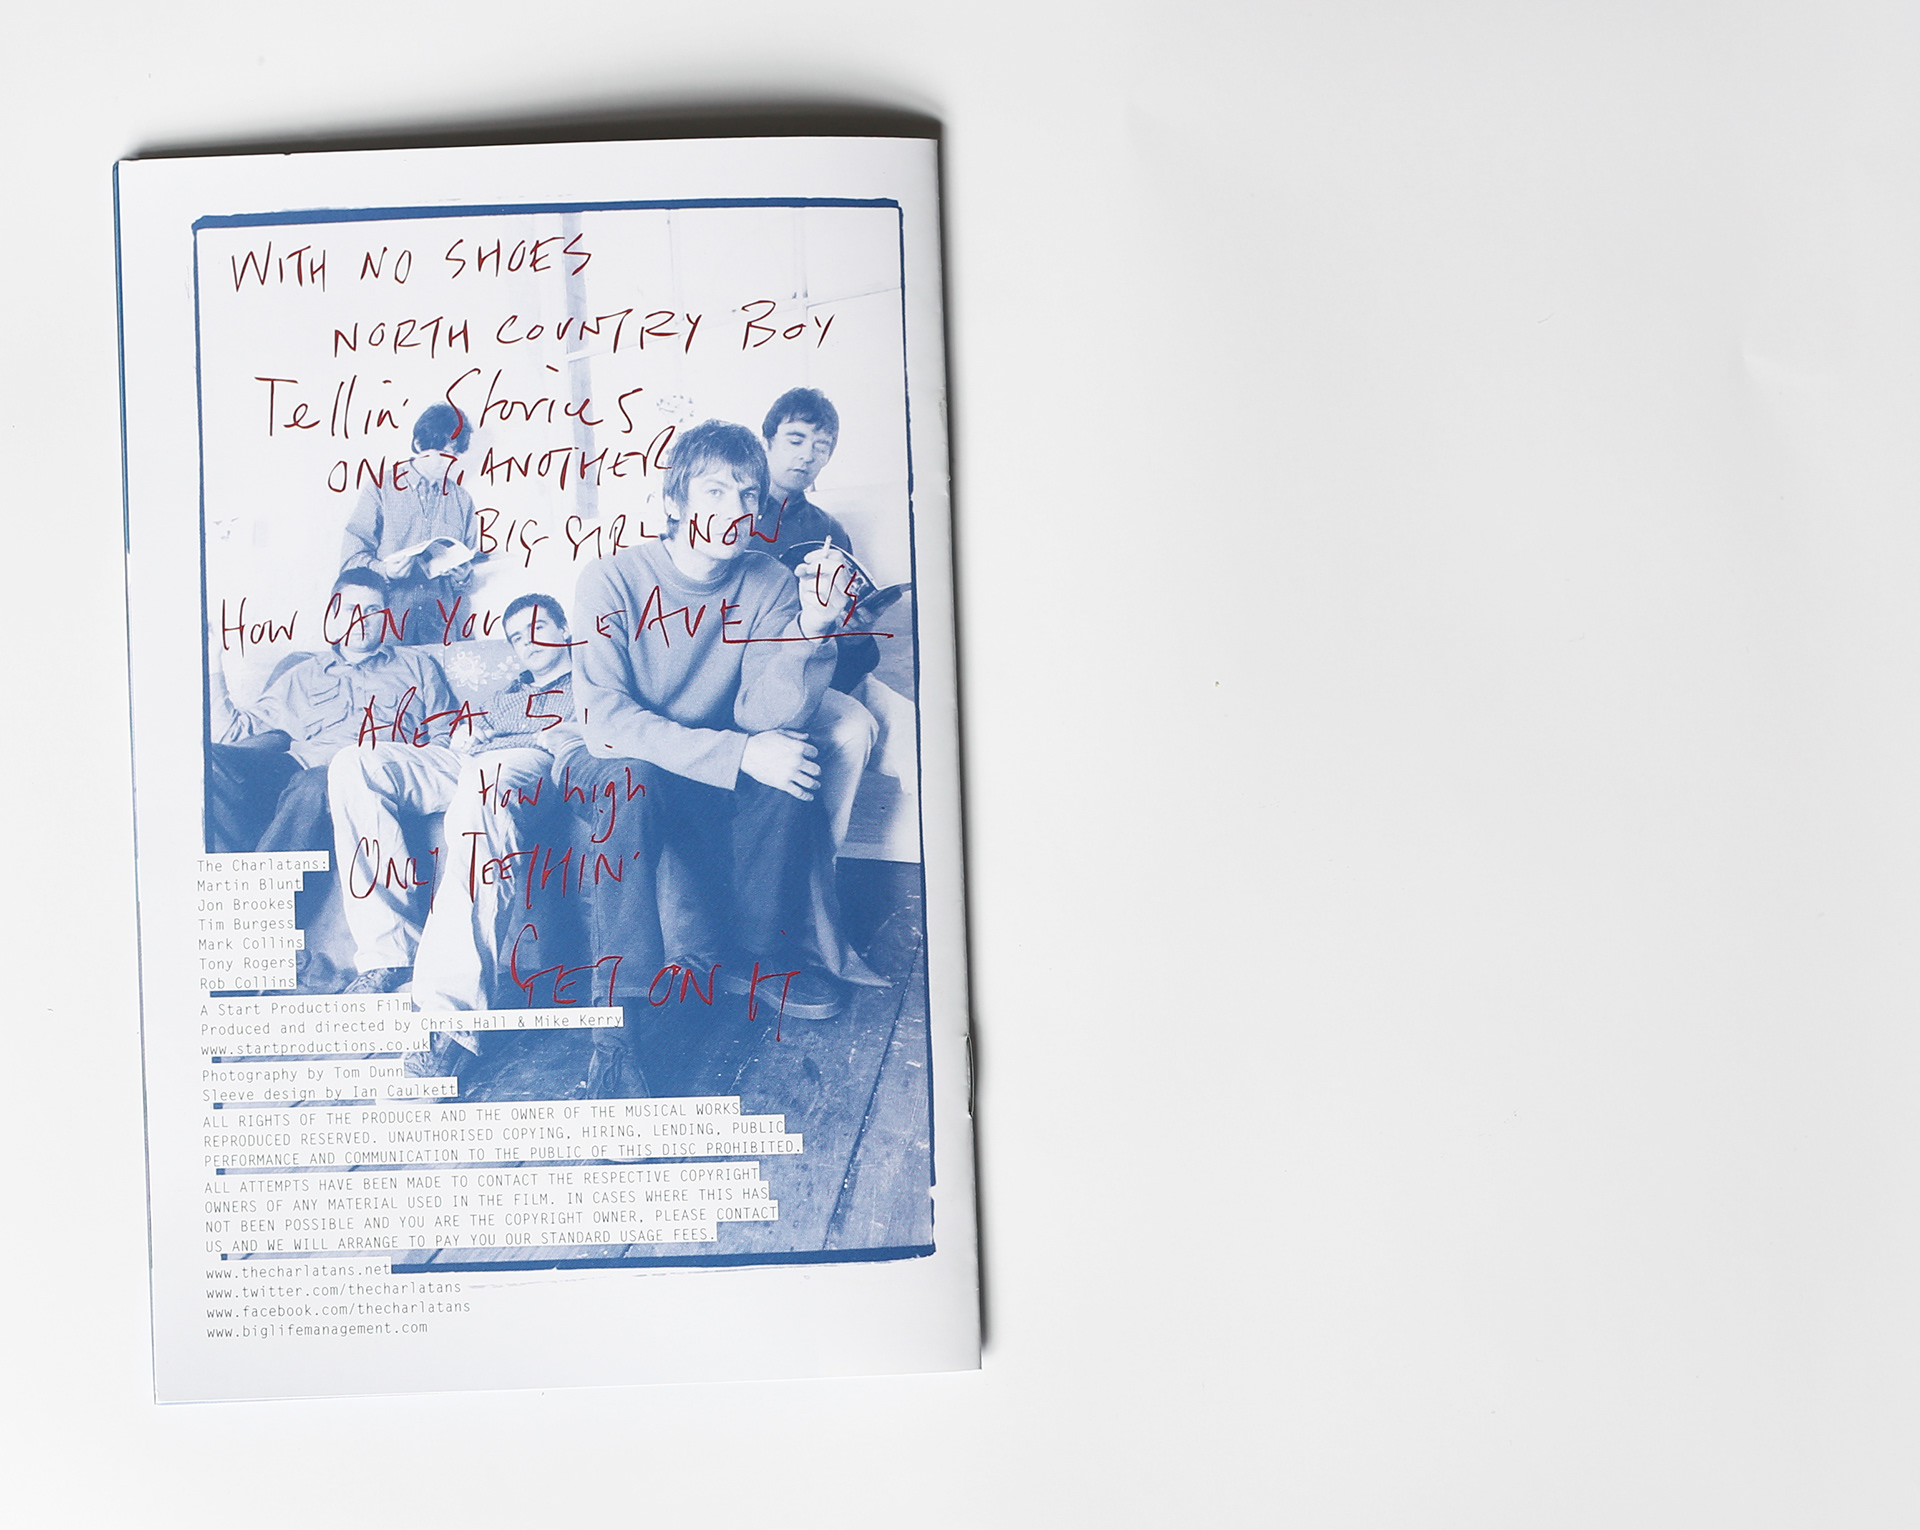 WITH NO SHOES
NORTH COUNTRY BOY
Tellin' Stories
ONE To ANOTHER
BIG GIRL NOW
HOW CAN YOU LEAVE US
AREA 51
How high
ONLY TEETHIN'
GET ON IT
The Charlatans:
Martin Blunt
Jon Brookes
Tim Burgess
Mark Collins
Tony Rogers
Rob Collins
A Start Productions Film
Produced and directed by Chris Hall & Mike Kerry
www.startproductions.co.uk
Photography by Tom Dunn
Sleeve design by Ian Caulkett
ALL RIGHTS OF THE PRODUCER AND THE OWNER OF THE MUSICAL WORKS
REPRODUCED RESERVED. UNAUTHORISED COPYING, HIRING, LENDING, PUBLIC
PERFORMANCE AND COMMUNICATION TO THE PUBLIC OF THIS DISC PROHIBITED.
ALL ATTEMPTS HAVE BEEN MADE TO CONTACT THE RESPECTIVE COPYRIGHT
OWNERS OF ANY MATERIAL USED IN THE FILM. IN CASES WHERE THIS HAS
NOT BEEN POSSIBLE AND YOU ARE THE COPYRIGHT OWNER, PLEASE CONTACT
US AND WE WILL ARRANGE TO PAY YOU OUR STANDARD USAGE FEES.
www.thecharlatans.net
www.twitter.com/thecharlatans
www.facebook.com/thecharlatans
www.biglifemanagement.com